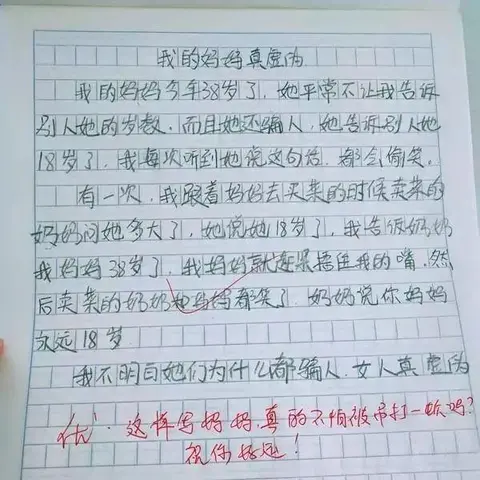 我的妈妈真虚伪
我的妈妈今年38岁了，她平常不让我告诉
别人她的岁数，而且她还骗人，她告诉别人她
18岁了，我每次听到她说这句话，都会偷笑。
有一次，我跟着妈妈去买菜的时候卖菜的
奶奶问她多大了，她说她18岁了，我告诉奶奶
我妈妈38岁了，我妈妈就赶紧捂住我的嘴，然
后卖菜的奶奶和妈妈都笑了，奶奶说你妈妈
永远18岁
我不明白她们为什么都骗人，女人真虚伪
优·这样写妈妈，真的不怕被吊打一顿吗？
祝你好运！